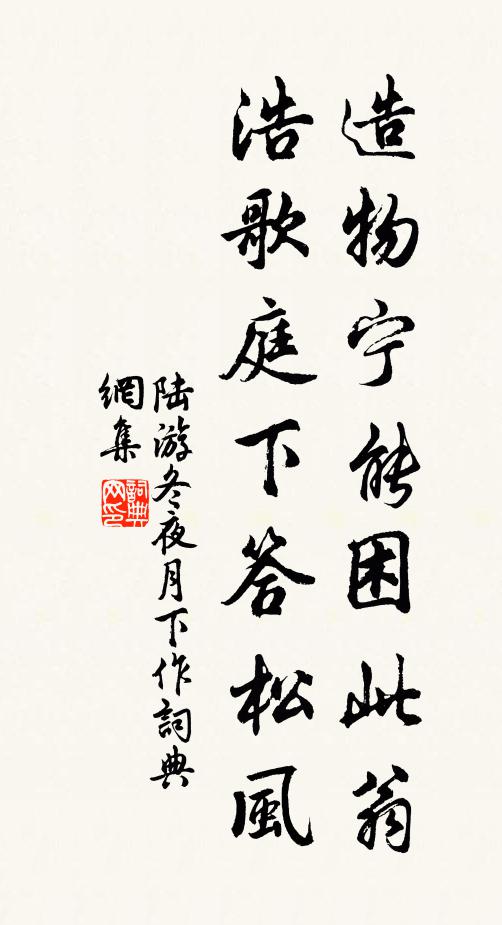 造物宁能困此翁
浩歌庭下答松風
陆游冬夜月下作詞典
網集
詞典
网印